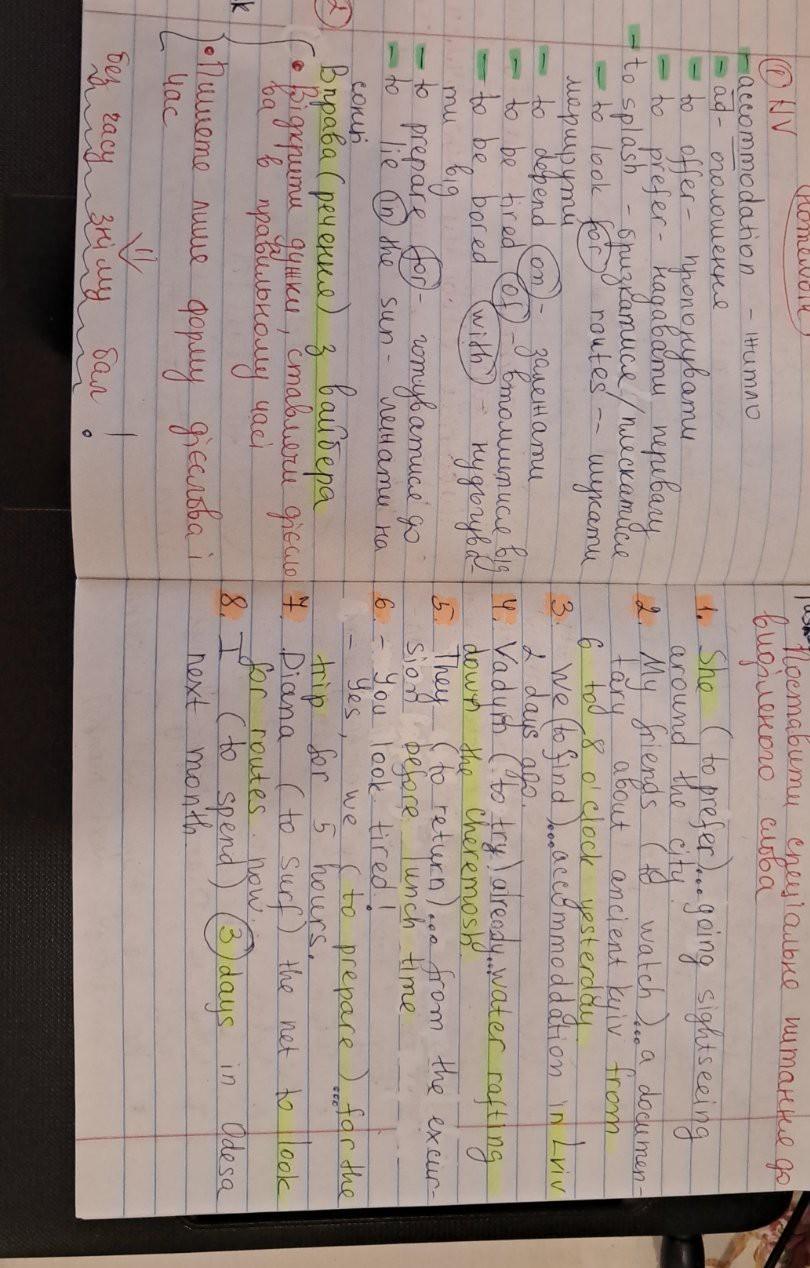 ① NV
- accommodation - житло
- ad - оголошення
- to offer - пропонувати
- to prefer - надавати перевагу
- to splash - бризкатися/плескатися
- to look for routes -- шукати
маршрути
- to depend on - залежати
- to be tired of - втомитися від
- to be bored with - нудьгува-
ти від
- to prepare for - готуватися до
- to lie in the sun - лежати на
сонці
Вправа (речення) з вайбера
• Відкрити дужки, ставлячи дієсло
ва в правильному часі
• Пишете лише форму дієслова і
час
без часу зніму бал!
Поставити спеціальне питання до
виділеного слова
1. She (to prefer)... going sightseeing
around the city.
2. My friends (to watch)... a documen-
tary about ancient Kyiv from
6 to 8 o'clock yesterday
3. We (to find)... accommoddation in Lviv
2 days ago.
4. Vadym (to try) already... water rafting
down the Cheremosh.
5. They (to return)... from the excur-
sion before lunch time
6. - You look tired!
- Yes, we (to prepare)... for the
trip for 5 hours.
7. Diana (to surf) the net to look
for routes now.
8. I (to spend) 3 days in Odesa
next month